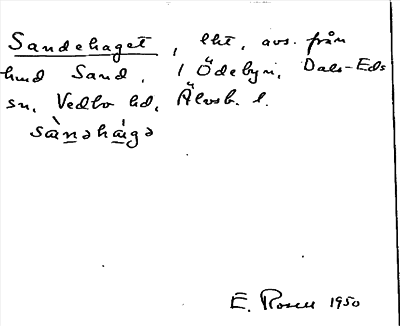 Sandehaget, lht, avs. från
hmd Sand, i Ödebyn, Dals-Eds
sn, Vedbo hd, Älvsb. l.
sànəhá̱gə
E. Rosell 1950